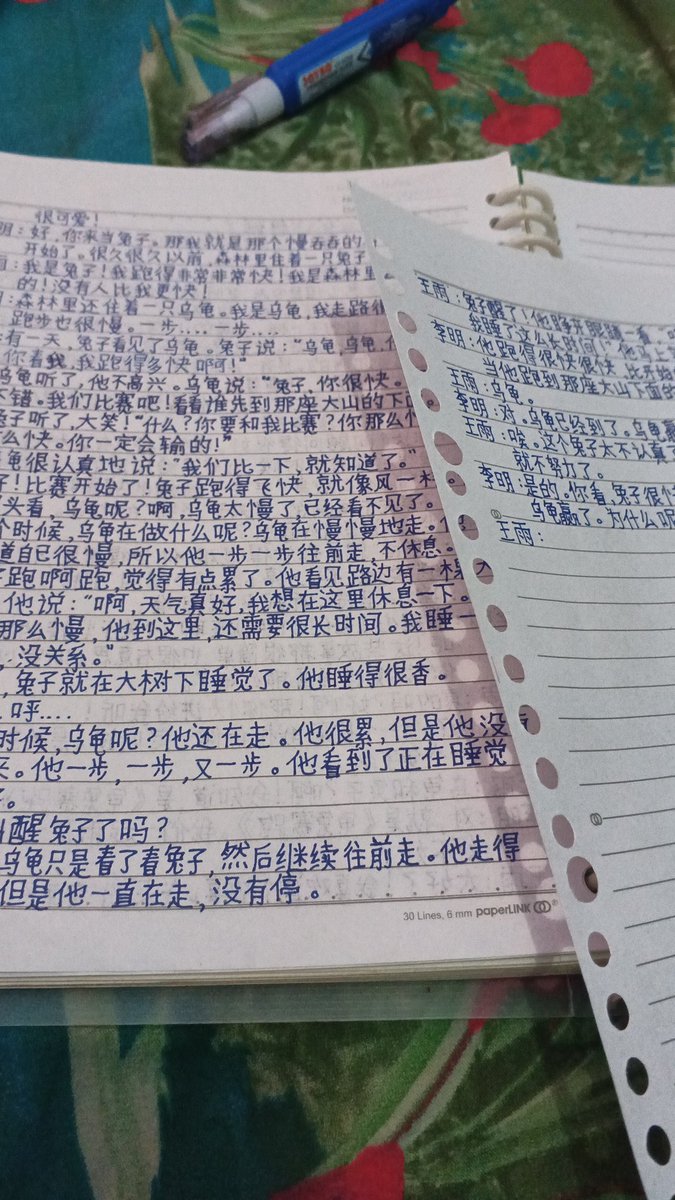 很可爱!
明:好,你来当兔子。那我就是那个慢吞吞的
开始了。很久很久以前,森林里住着一只兔子
雨:我是兔子!我跑得非常非常快!我是森林里
的!没有人比我更快!
:森林里还住着一只乌龟。我是乌龟,我走路很
跑步也很慢。一步....一步....
有一天,兔子看见了乌龟。兔子说:“乌龟,乌龟,
你看我,我跑得多快啊!”
乌龟听了,他不高兴。乌龟说:“兔子,你很快。
不错。我们比赛吧!看看谁先到那座大山的下面
兔子听了,大笑!“什么?你要和我比赛?你那么
么快。你一定会输的!”
龟很认真地说:“我们比一下,就知道了。”
好!比赛开始了!兔子跑得飞快,就像风一样。
头看,乌龟呢?啊,乌龟太慢了,已经看不见了。
个时候,乌龟在做什么呢?乌龟在慢慢地走。
道自己很慢,所以他一步一步往前走,不休息。
跑啊跑,觉得有点累了。他看见路边有一棵大
他说:“啊,天气真好,我想在这里休息一下。
那么慢,他到这里,还需要很长时间。我睡一
,没关系。”
,兔子就在大树下睡觉了。他睡得很香。
呼....
时候,乌龟呢?他还在走。他很累,但是他没有
。他一步,一步,又一步。他看到了正在睡觉
醒兔子了吗?
乌龟只是看了看兔子,然后继续往前走。他走得
但是他一直在走,没有停。
30 Lines, 6 mm paperLINK
王雨:兔子醒了!他睁开眼睛一看,
我睡了这么长时间!”他马上
李明:他跑得很快很快,比开始
当他跑到那座大山下面的
王雨:乌龟。
李明:对。乌龟已经到了。乌龟赢
王雨:唉。这个兔子太不认真了
就不努力了。
李明:是的。你看,兔子很快
乌龟赢了。为什么呢
王雨: